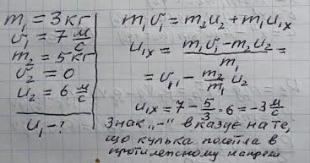 m₁ = 3 кг
v₁ = 7 м/с
m₂ = 5 кг
v₂ = 0
u₂ = 6 м/с
u₁ - ?
m₁v₁ = m₂u₂ + m₁u₁ₓ
u₁ₓ = (m₁v₁ - m₂u₂)/m₁ =
= v₁ - m₂/m₁ u₂
u₁ₓ = 7 - 5/3 · 6 = -3 м/с
Знак „-” вказує на те,
що кулька полетіла в
протилежному напрямі